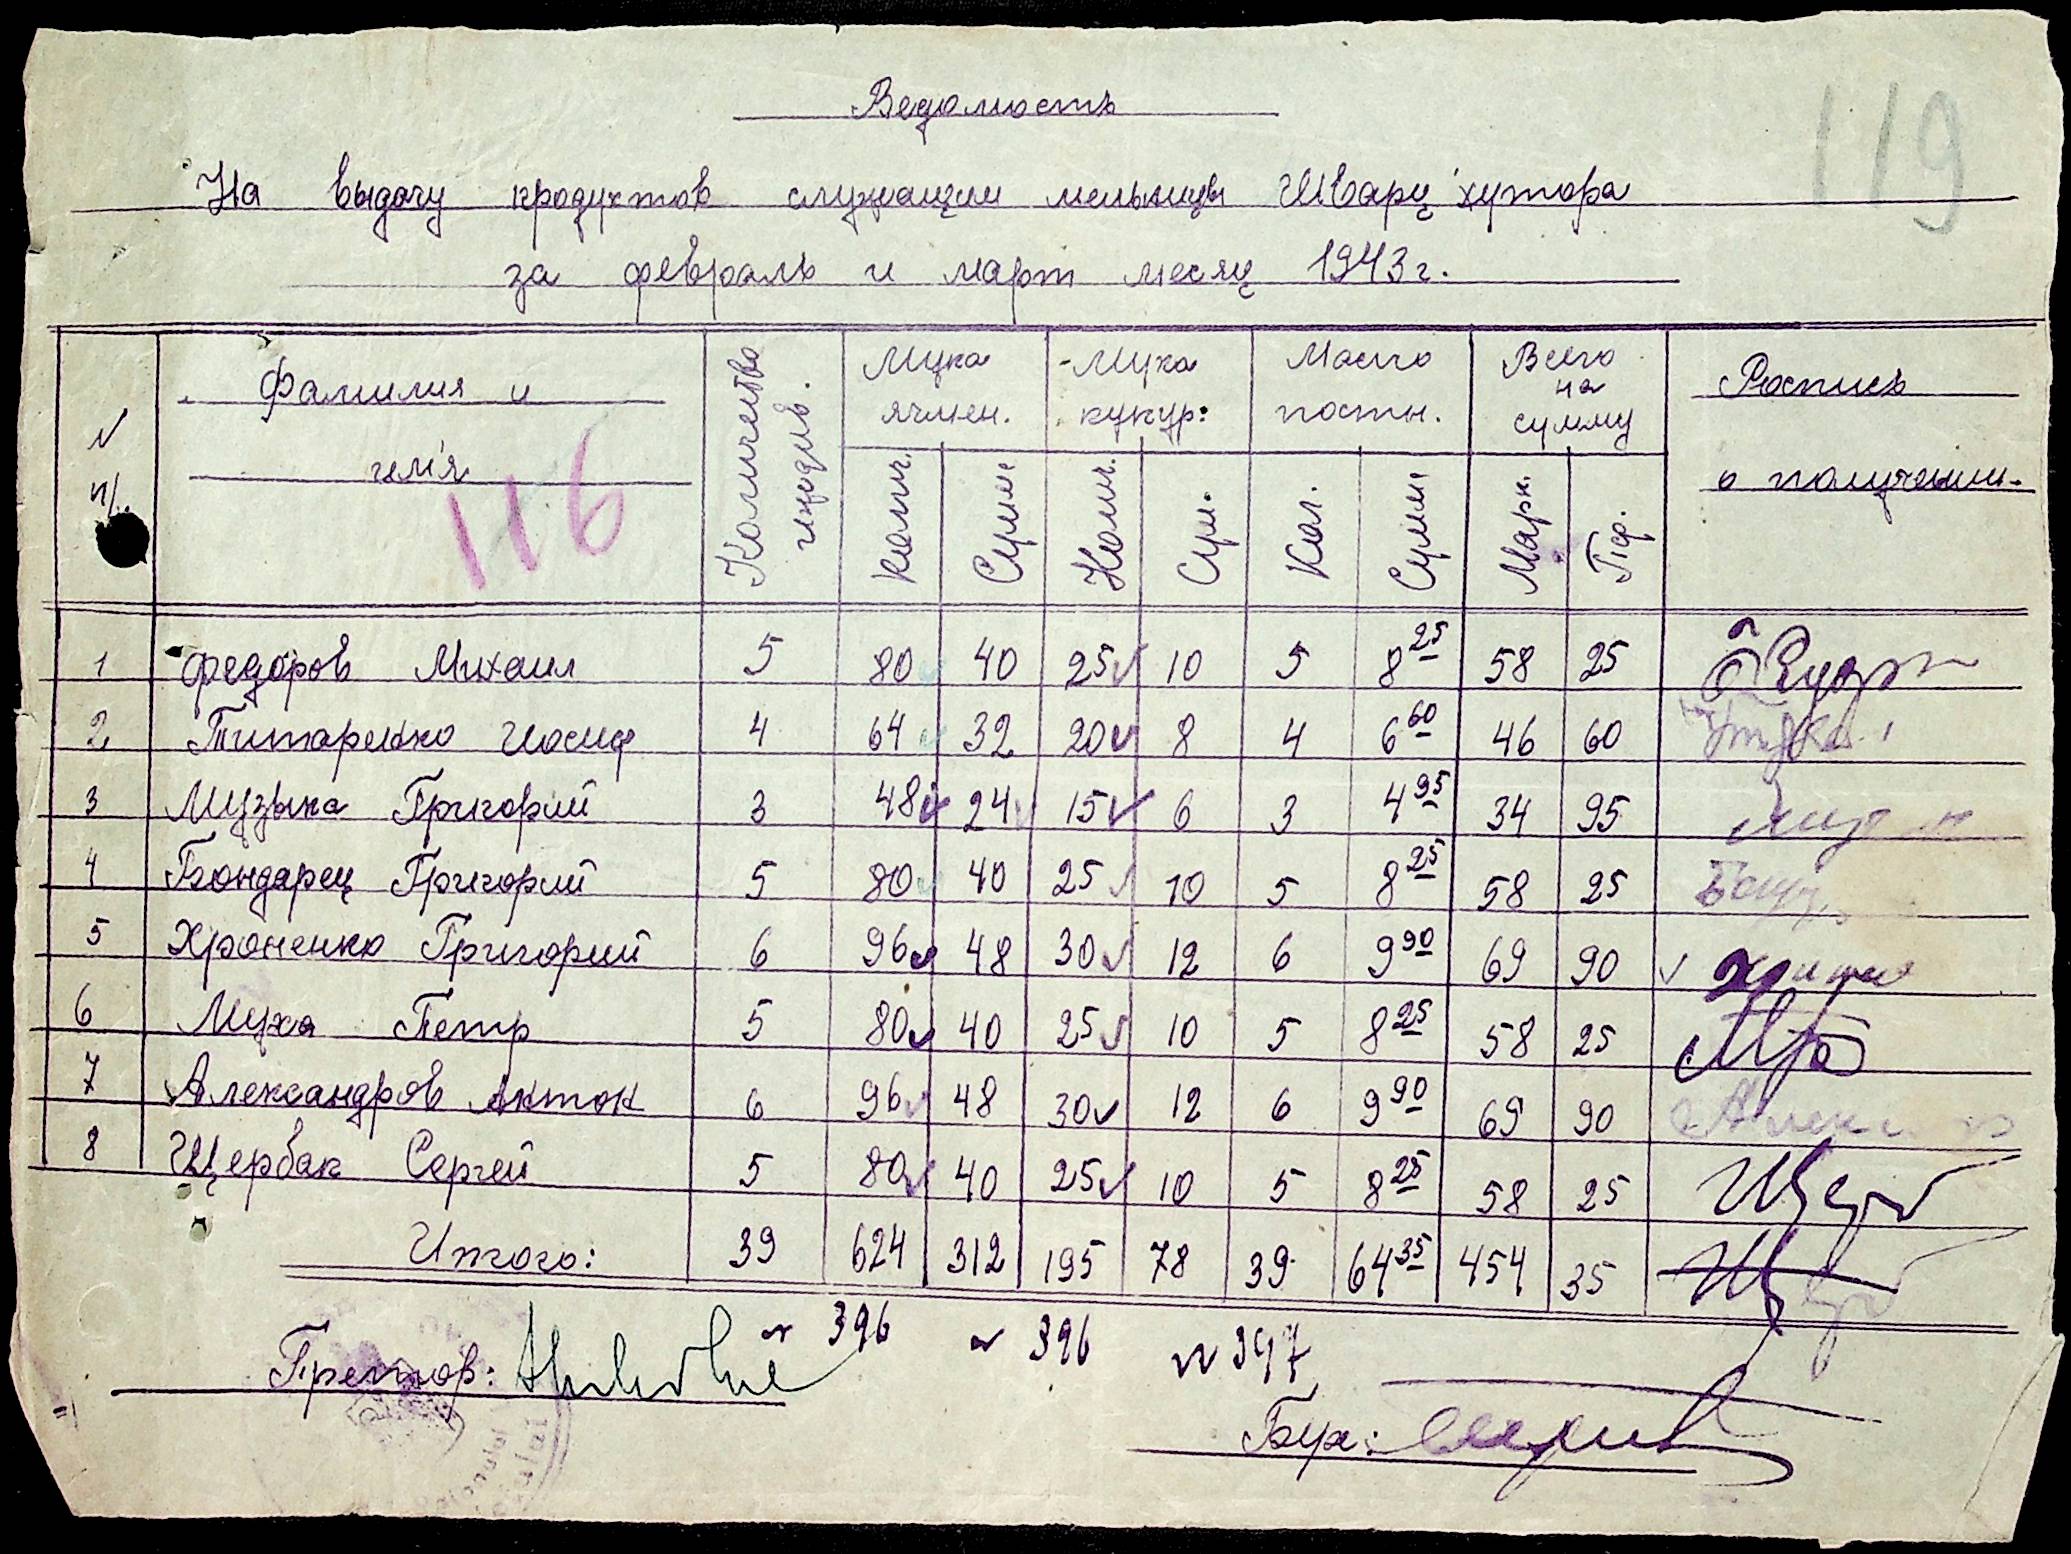 119
Ведомость
На выдачу продуктов служащим мельницы Шварц хутора
за февраль и март месяц 1943 г.
№ п/. Фамилия и имя Количество иждив. Мука ячмен. Мука кукур: Масло постн. Всего на сумму Роспись о получении.
Колич. Сумм: Колич. Сум. Кол. Сумм: Марк. Пф.
116
1 Федоров Михаил 5 80 40 25 10 5 8 25 58 25
2 Титаренко Иосиф 4 64 32 20 8 4 6 60 46 60
3 Музыка Григорий 3 48 24 15 6 3 4 95 34 95
4 Бондарец Григорий 5 80 40 25 10 5 8 25 58 25
5 Хроненко Григорий 6 96 48 30 12 6 9 90 69 90
6 Муха Петр 5 80 40 25 10 5 8 25 58 25
7 Александров Антон 6 96 48 30 12 6 9 90 69 90
8 Щербак Сергей 5 80 40 25 10 5 8 25 58 25
Итого: 39 624 312 195 78 39 64 35 454 35
396 396 397
Претор:
Бух: